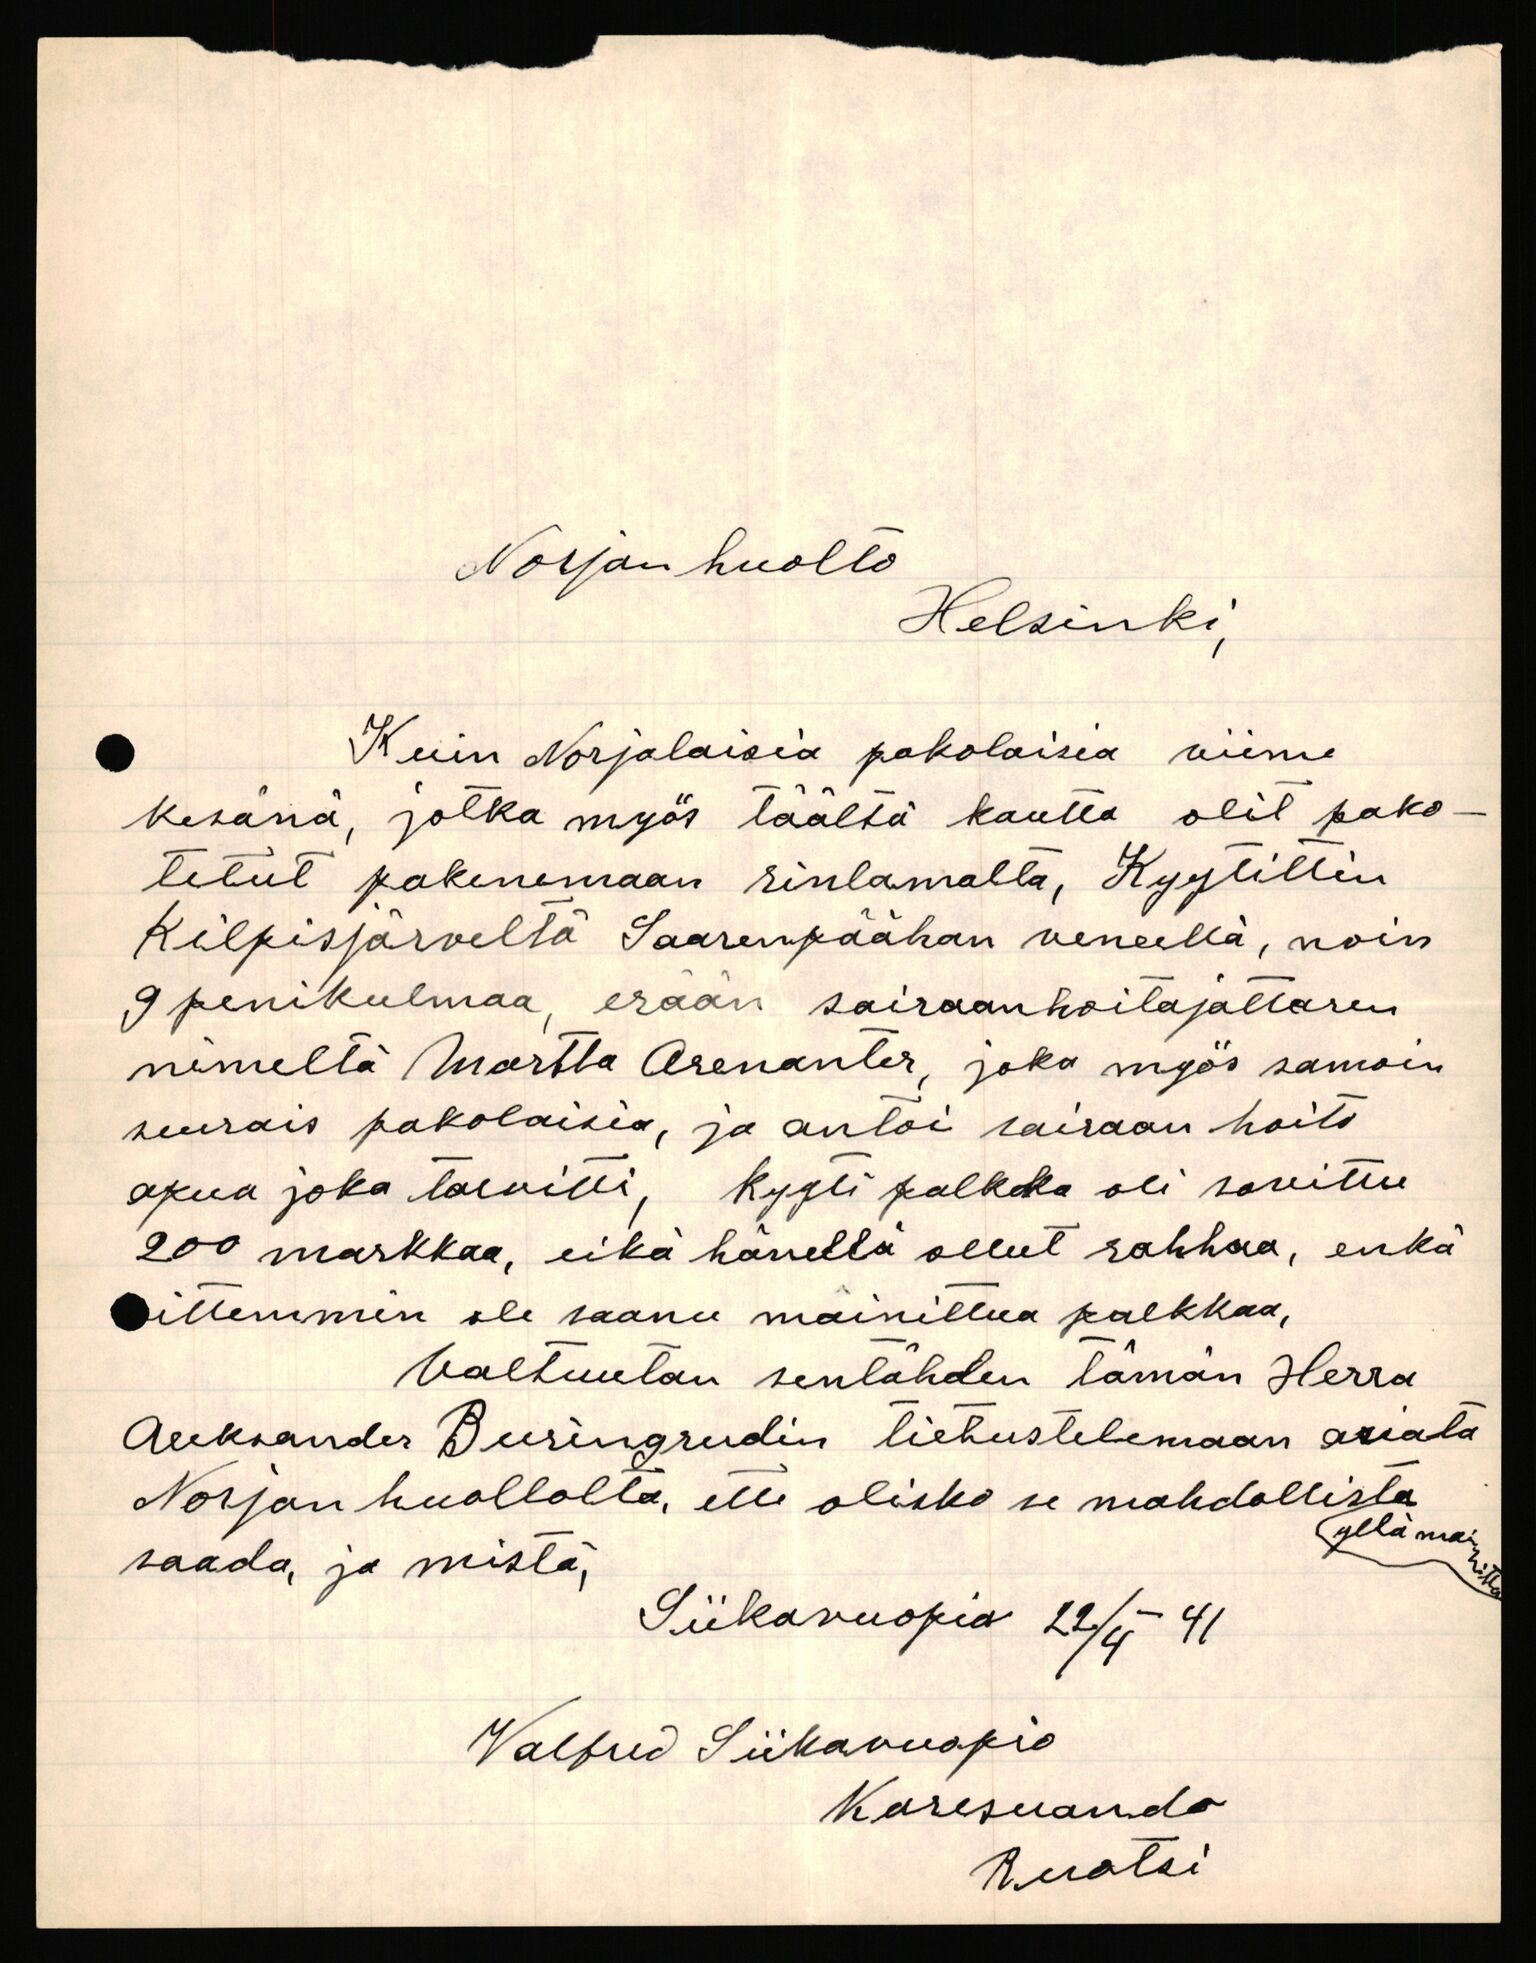 Norjan huolto
Helsinki,
Kuin Norjalaisia pakolaisia viime
kesänä, jotka myös täältä kautta olit pako-
tetut pakenemaan rinlamalta, Kyytittin
Kilpisjärveltä Saarenpäähan veneellä, noin
9 penikulmaa, erään sairaanhoitajattaren
nimeltä Martta Arenanter, joka myös samoin
seurais pakolaisia, ja antoi sairaan hoito
apua joka tarvitti, kyyti palkka oli sovittu
200 markkaa, eikä hänellä ollut rahhaa, enkä
sittemmin ole saanu mainittua palkkaa,
Valtuutan sentähden tämän Herra
Aleksander Buringrudin tiehustelemaan asiata
Norjan huollolta, ette olisko se mahdollista
yllä mainittu
saada, ja mistä,
Siikavuopia 22/4 - 41
Valfred Siikavuopio
Karesuando
Ruotsi